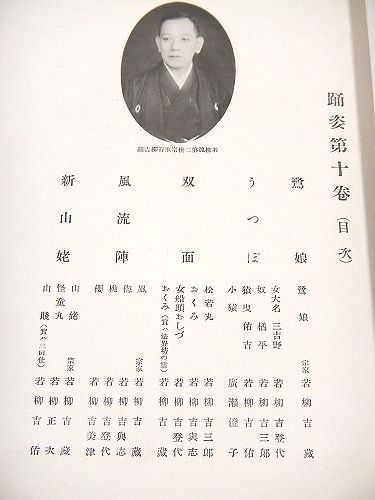 踊姿第十巻（目次）
鷺娘
鷺娘 宗家 若柳吉蔵
うつぼ
女大名 三吉野 若柳吉登代
奴 橘平 若柳吉三郎
猿曳 佑吉 若柳吉佑
小猿 廣瀬澄子
双面
松若丸 若柳吉三郎
おくみ 若柳吉與志
女船頭おしづ 若柳吉登代
おくみ（實ハ法界坊の霊） 若柳吉蔵
風流陣
風 宗家 若柳吉蔵
梅 若柳吉與志
桃 若柳吉登代
櫻 若柳吉美津
新山姥
山姥 宗家 若柳吉蔵
怪童丸 若柳正次
山賤（實ハ三田仕） 若柳吉佑